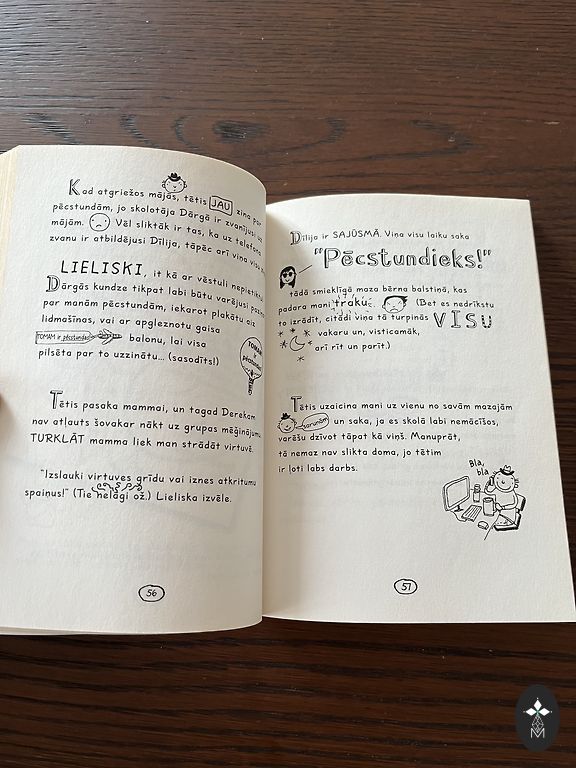 Kad atgriežos mājās, tētis JAU zina par
pēcstundām, jo skolotāja Dārgā ir zvanījusi uz
mājām. Vēl sliktāk ir tas, ka uz telefona
zvanu ir atbildējusi Dīlija, tāpēc arī viņa visu
LIELISKI, it kā ar vēstuli nepietiktu
Dārgās kundze tikpat labi būtu varējusi paziņo
par manām pēcstundām, iekarot plakātu aiz
lidmašīnas, vai ar apgleznotu gaisa
TOMAM ir pēcstundas balonu, lai visa
pilsēta par to uzzinātu... (sasodīts!)
TOMAM
ir
pēcstundas
Tētis pasaka mammai, un tagad Derekam
nav atļauts šovakar nākt uz grupas mēģinājumu
TURKLĀT mamma liek man strādāt virtuvē.
"Izslauki virtuves grīdu vai iznes atkritumu
spaiņus!" (Tie nelāgi ož.) Lieliska izvēle.
56
Dīlija ir SAJŪSMĀ. Viņa visu laiku saka
"Pēcstundieks!"
tādā smieklīgā maza bērna balstiņā, kas
padara mani traku. (Bet es nedrīkstu
to izrādīt, citādi viņa tā turpinās VISU
vakaru un, visticamāk,
arī rīt un parīt.)
Tētis uzaicina mani uz vienu no savām mazajām
sarunām un saka, ja es skolā labi nemācīšos,
varēšu dzīvot tāpat kā viņš. Manuprāt,
tā nemaz nav slikta doma, jo tētim
ir ļoti labs darbs.
Bla,
bla
57
M